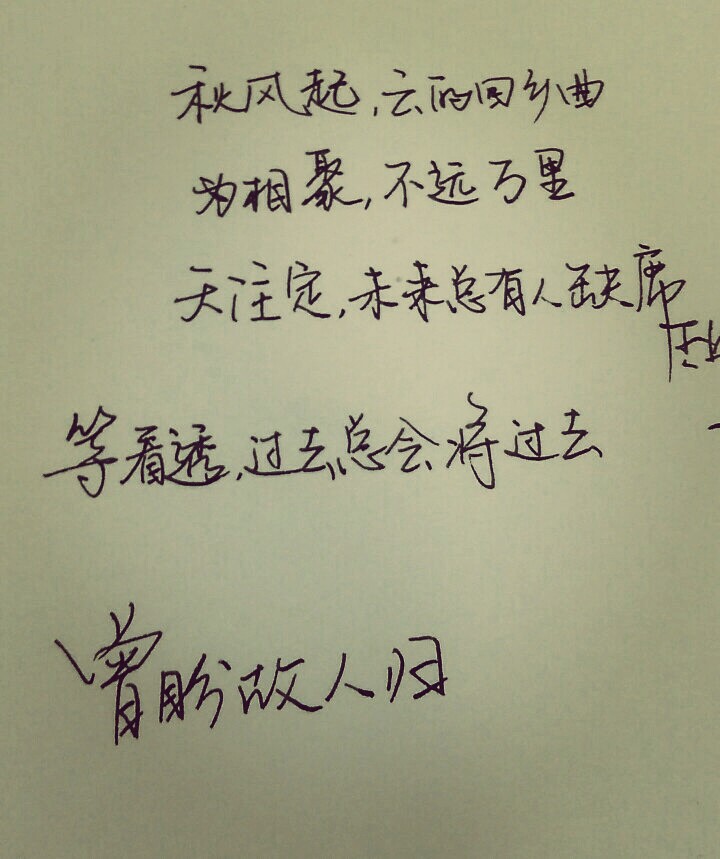 秋风起,云的回乡曲
为相聚,不远万里
天注定,未来总有人缺席
等看透,过去总会将过去
曾盼故人归